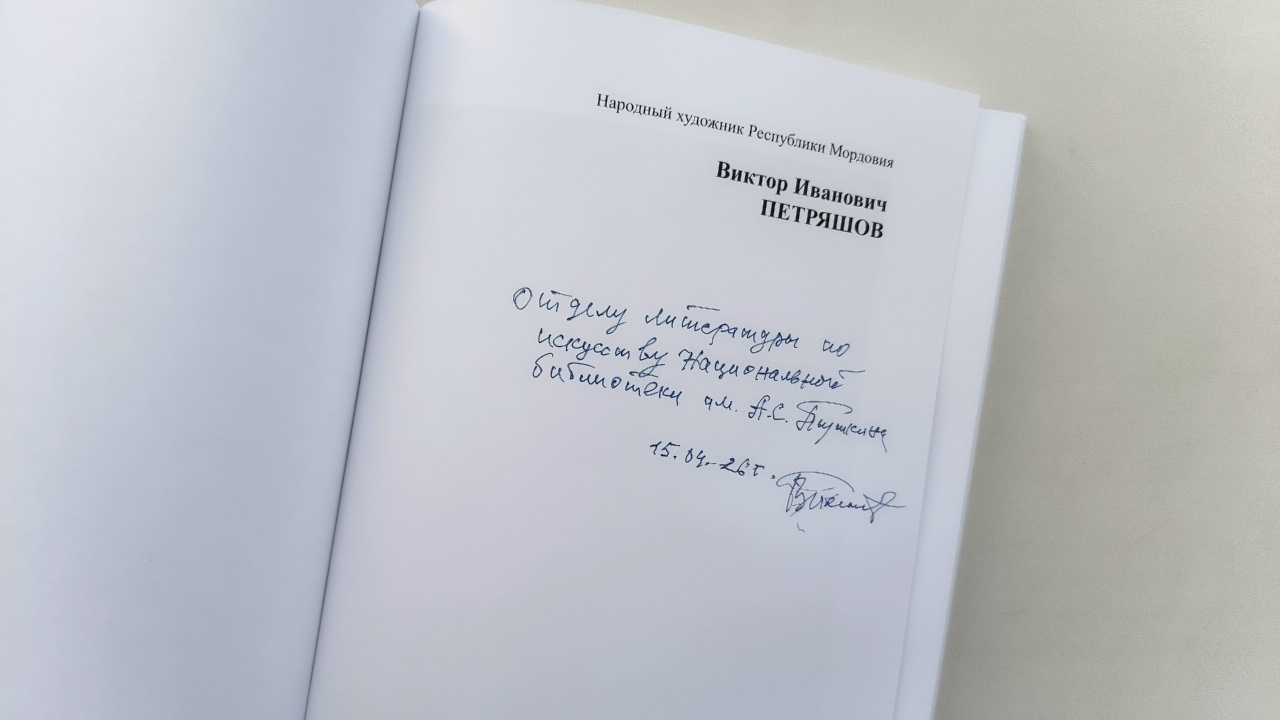 Народный художник Республики Мордовия
Виктор Иванович
ПЕТРЯШОВ
Отделу литературы по
искусству Национальной
библиотеки им. А.С. Пушкина
15.04.26 г.